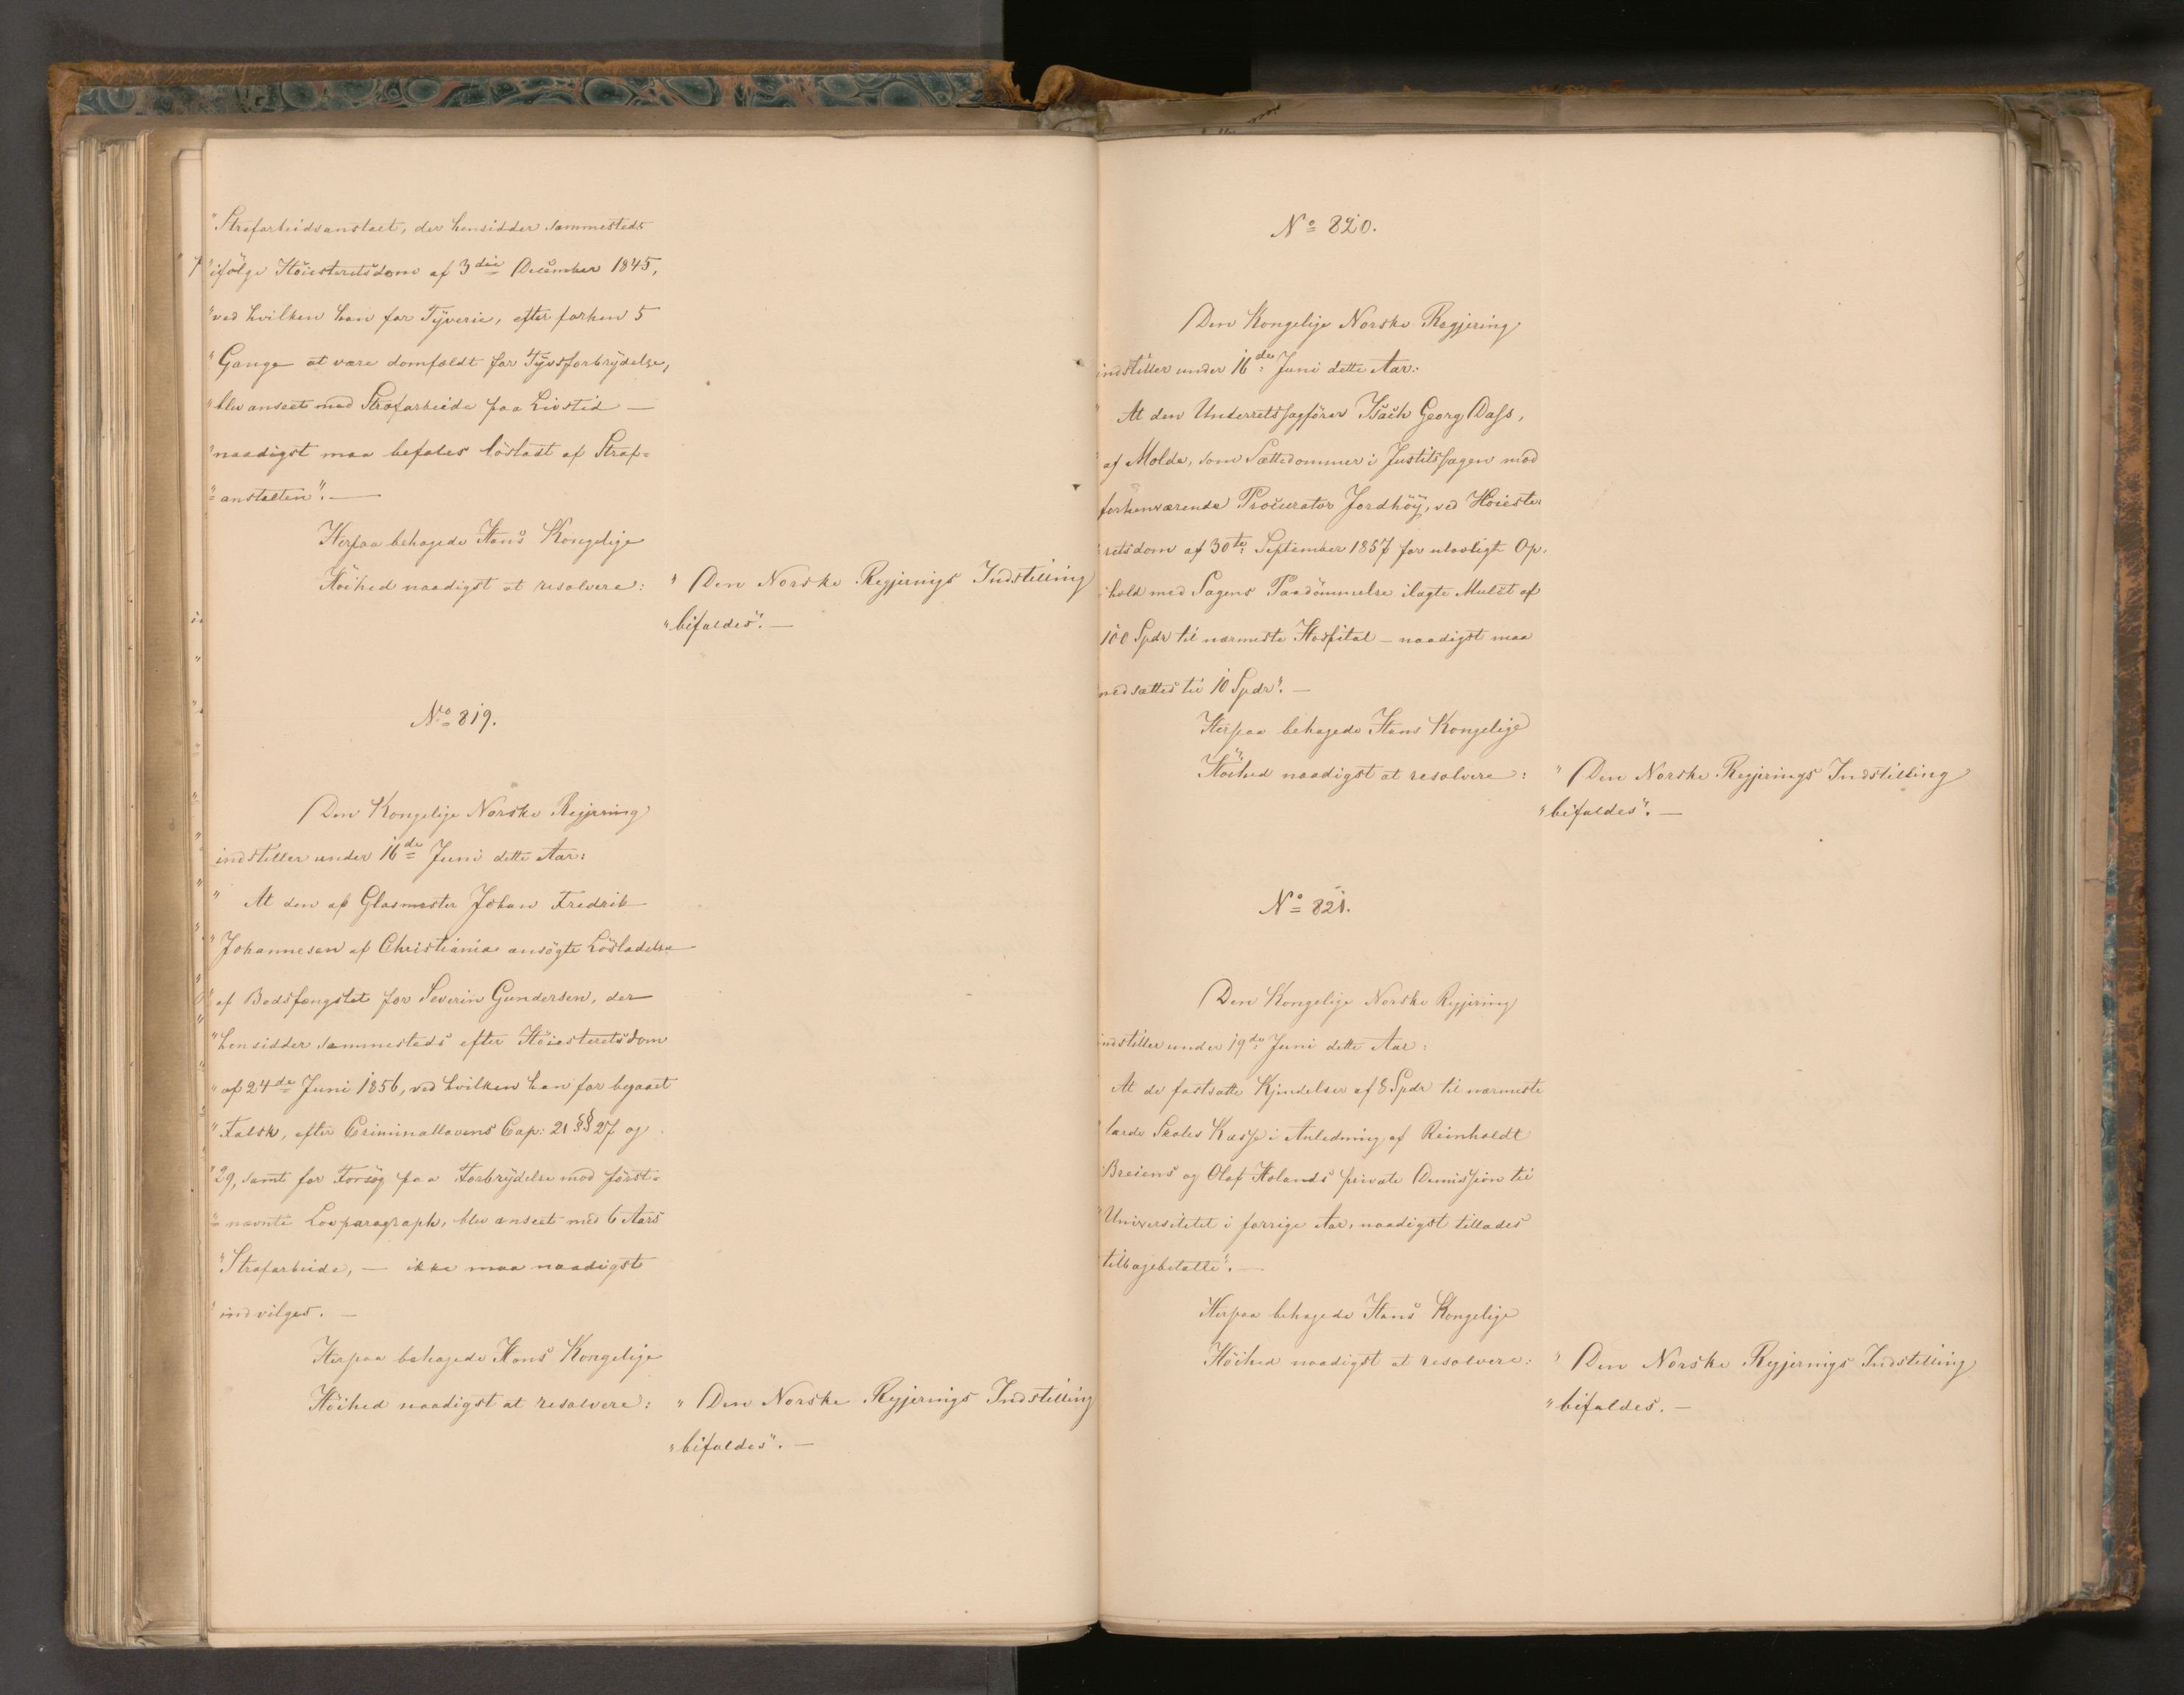 "Strafarbeidsanstalt, der hensidder sammesteds
"ifölge Höiesteretsdom af 3die December 1845,
"ved hvilken han for Tyverie, efter forhen 5
"Gange at være domfældt for Tyvsforbrydelse,
"blev anseet med Strafarbeide paa Livstid —
"naadigst maa befales lösladt af Straf-
"=anstalten". —
Herpaa behagede Hans Kongelige
Höihed naadigst at resolvere:
"Den Norske Regjerings Indstilling
"bifaldes". —
No 819.
Den Kongelige Norske Regjering
indstiller under 16de Juni dette Aar:
" At den af Glasmester Johan Fredrik
"Johannesen af Christiania ansögte Lösladelse
"af Bodsfængslet for Severin Gundersen, der
"hensidder sammesteds efter Höiesteretsdom
"af 24de Juni 1856, ved hvilken han for begaaet
"Falsk, efter Criminallovens Cap: 21 §§ 27 og
"29, samt for Forsög paa Forbrydelse mod först-
"=nævnte Lovparagraph, blev anseet med 6 Aars
"Strafarbeide, — ikke maa naadigst
"indvilges. —
Herpaa behagede Hans Kongelige
Höihed naadigst at resolvere:
"Den Norske Regjerings Indstilling
"bifaldes". —
No 820.
Den Kongelige Norske Regjering
indstiller under 16de Juni dette Aar:
" At den Underretssagförer Isach Georg Dass,
"af Molde, som Sættedommer i Justitssagen mod
forhenværende Procurator Jordhöy, ved Höieste-
"retsdom af 30te September 1857 for ulovligt Op-
"hold med Sagens Paadömmelse ilagte Mulct af
100 Spdr til nærmeste Hospital — naadigst maa
nedsættes til 10 Spdr". —
Herpaa behagede Hans Kongelige
Höihed naadigst at resolvere:
"Den Norske Regjerings Indstilling
"bifaldes". —
No 821.
Den Kongelige Norske Regjering
indstiller under 19de Juni dette Aar:
At de fastsatte Kjendelser af 8 Spdr til nærmeste
"lærde Skoles Kasse i Anledning af Reinholdt
"Breiens og Olaf Holands private Demission til
"Universitetet i forrige Aar, naadigst tillades
"tilbagebetalte". —
Herpaa behagede Hans Kongelige
Höihed naadigst at resolvere:
"Den Norske Regjerings Indstilling
"bifaldes. —